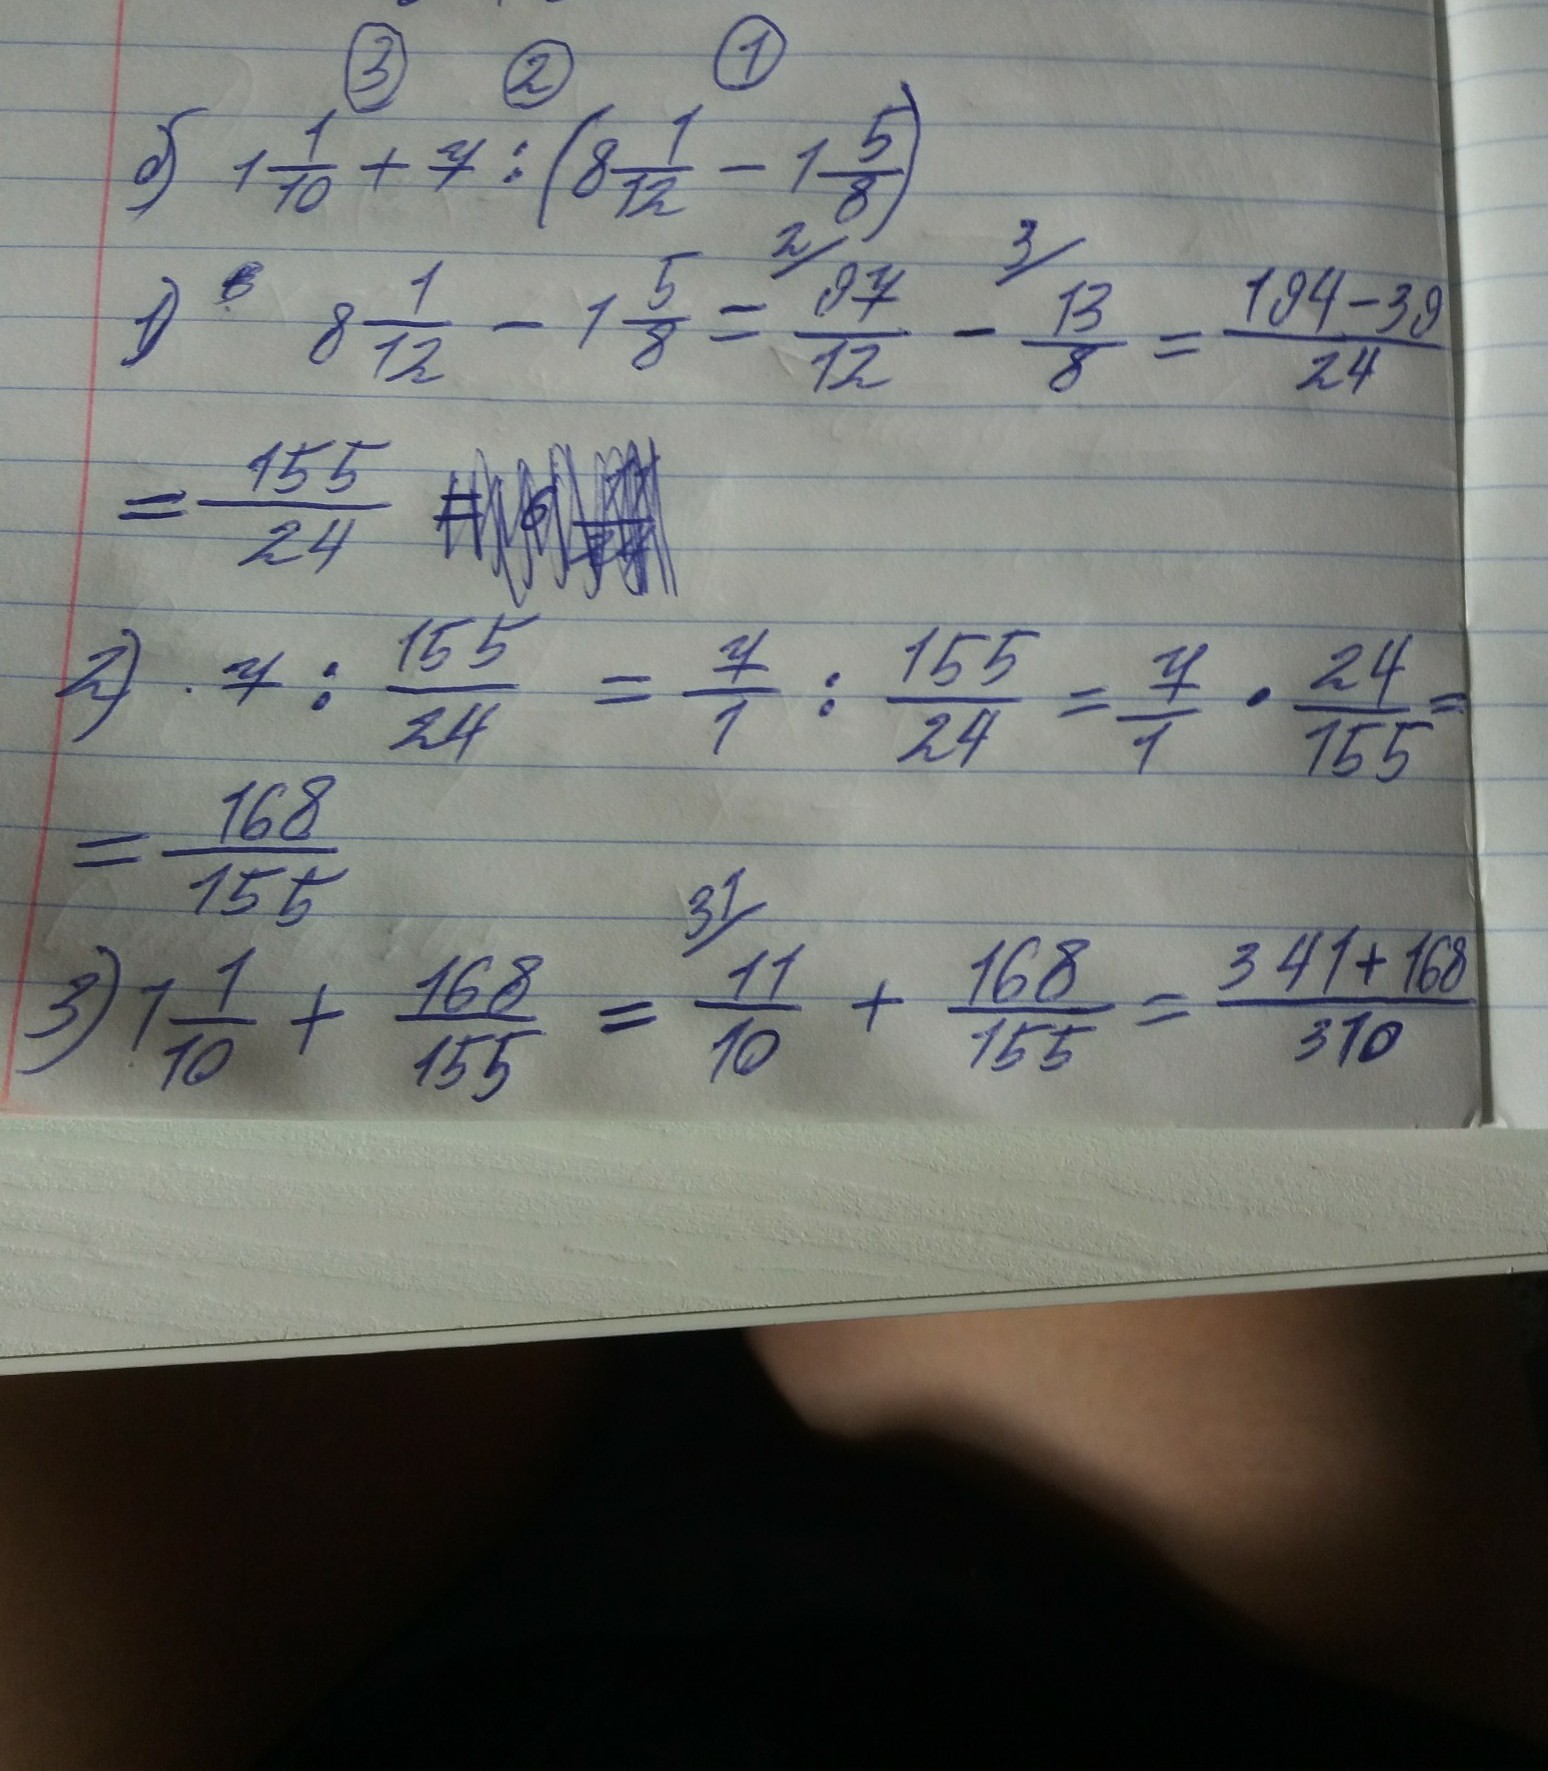 ③ ② ①
б) 1 1/10 + 7 : (8 1/12 - 1 5/8)
1) 8 1/12 - 1 5/8 = 2/ 97/12 - 3/ 13/8 = 194-39/24
= 155/24 =
2) · 7 : 155/24 = 7/1 : 155/24 = 7/1 · 24/155 =
= 168/155
3) 1 1/10 + 168/155 = 31/ 11/10 + 168/155 = 341+168/310